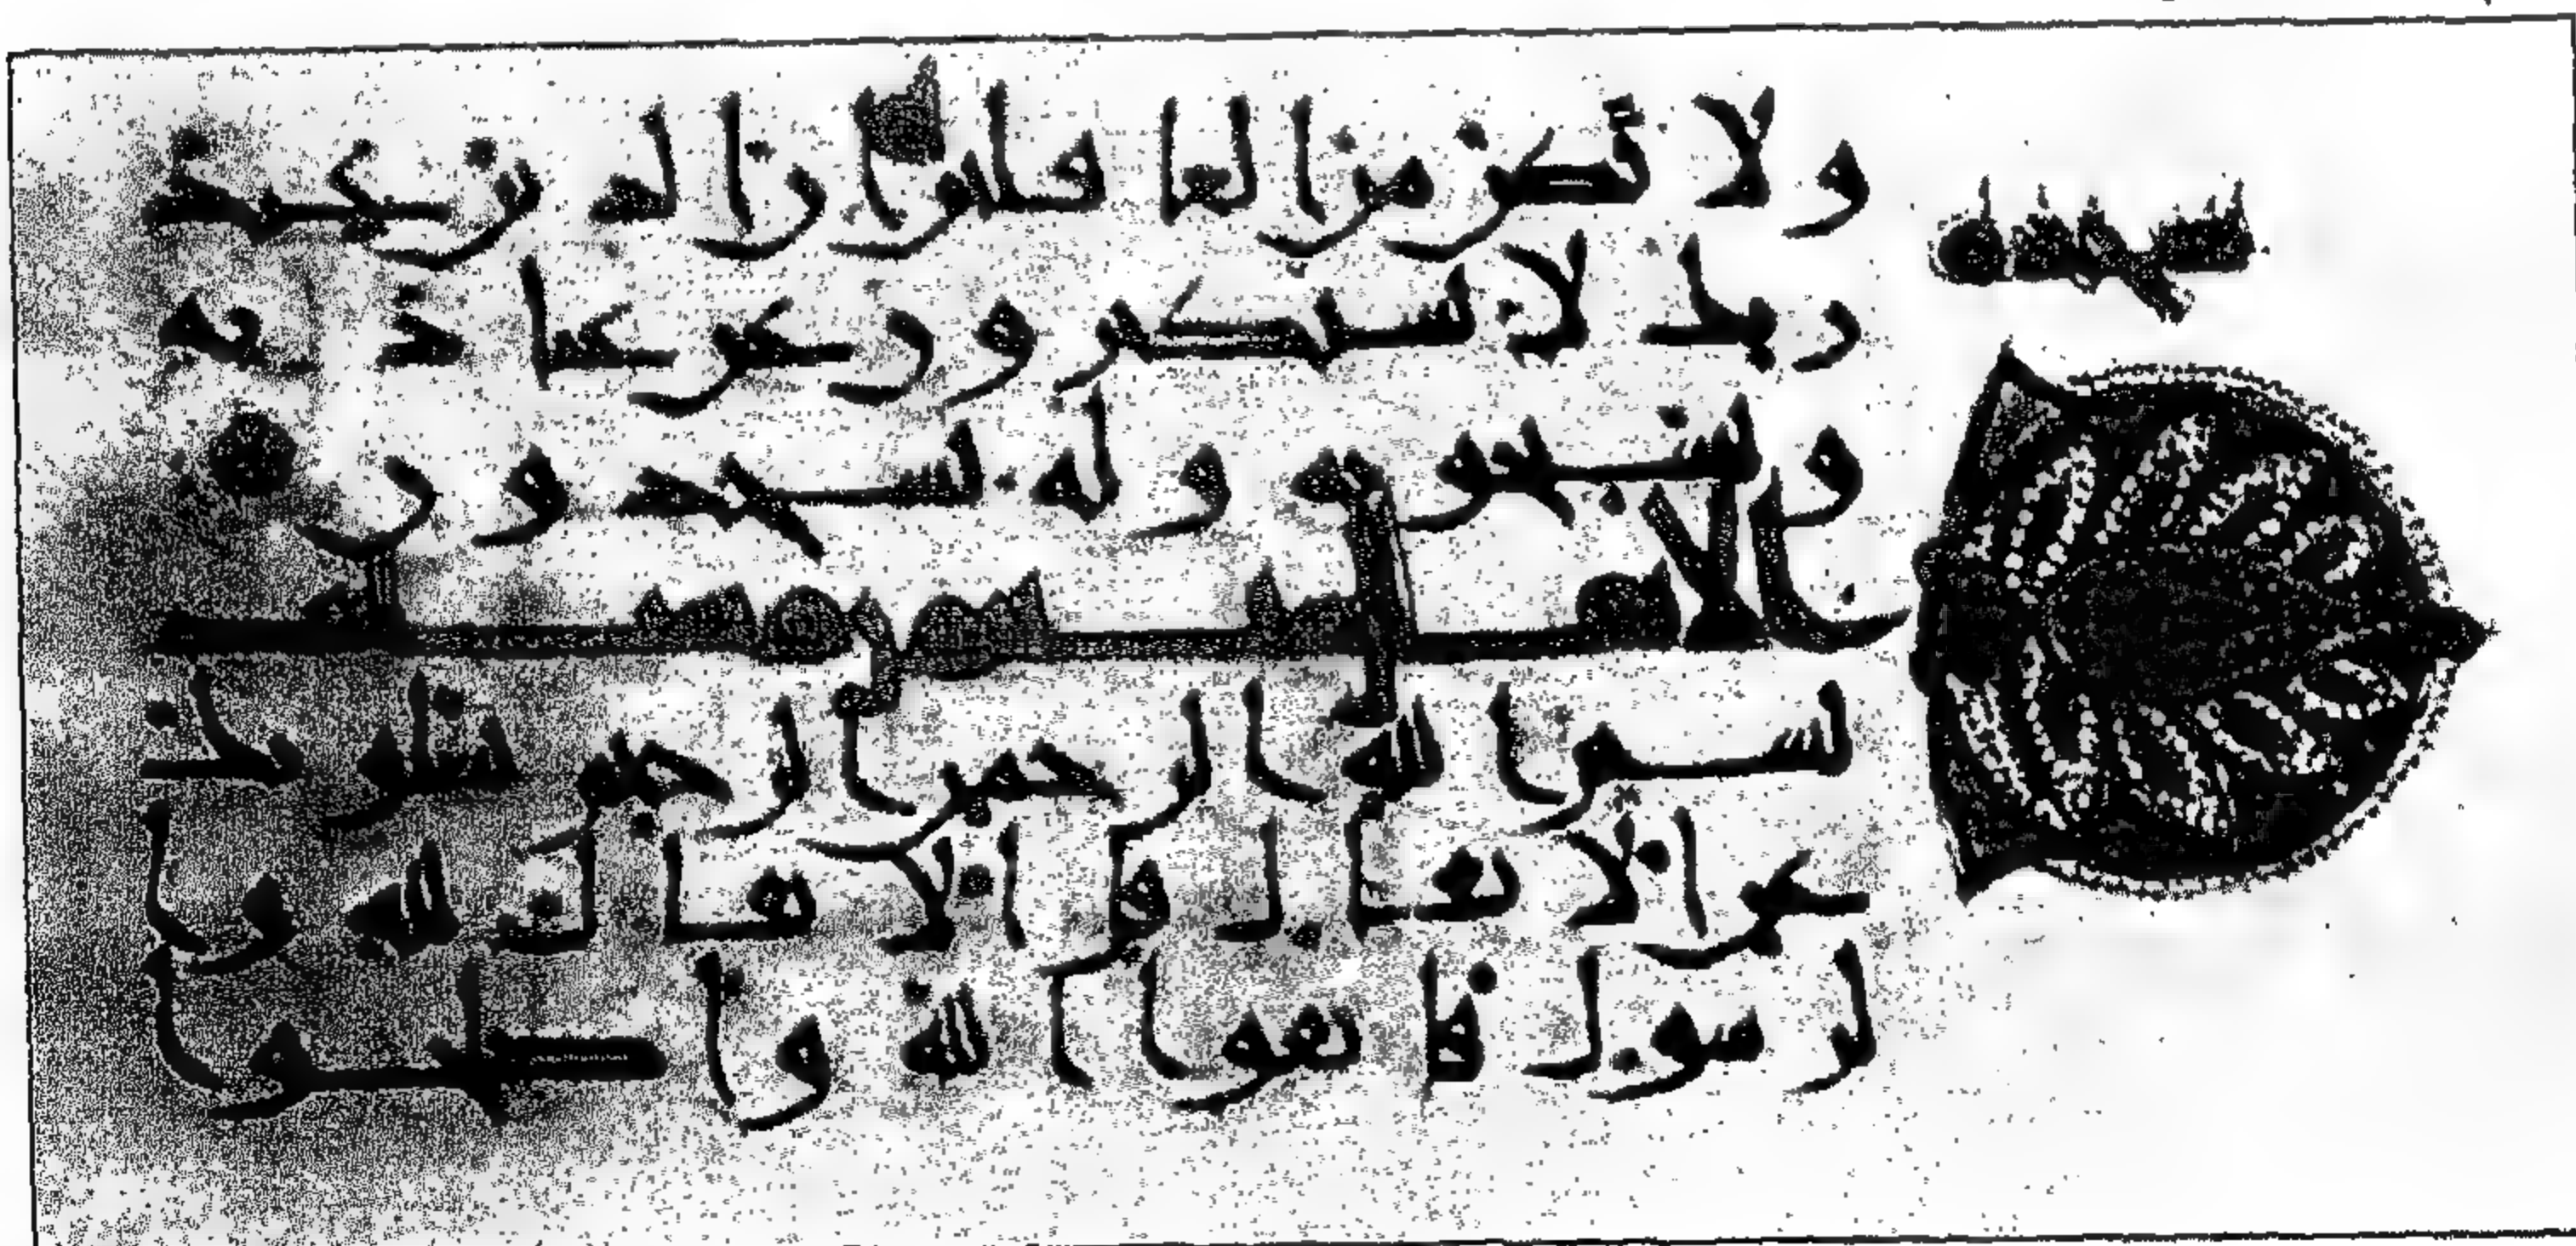 ولا تكن من الغافلين ان الذين عند
سجدة
ربك لا يستكبرون عن عبادته
ويسبحونه وله يسجدون
الانفال
بسم الله الرحمن الرحيم يسلونك
عن الانفال قل الانفال لله وا
لرسول فاتقوا الله واصلحوا